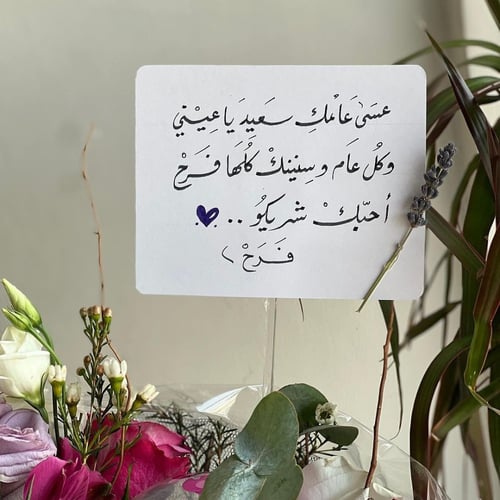 عسَى عَامُكِ سَعِيدَ يا عِيْني
وكُل عَام وسِنينكْ كُلهَا فَرَحْ
أحبّكْ شريكُو ..
فَرَحْ